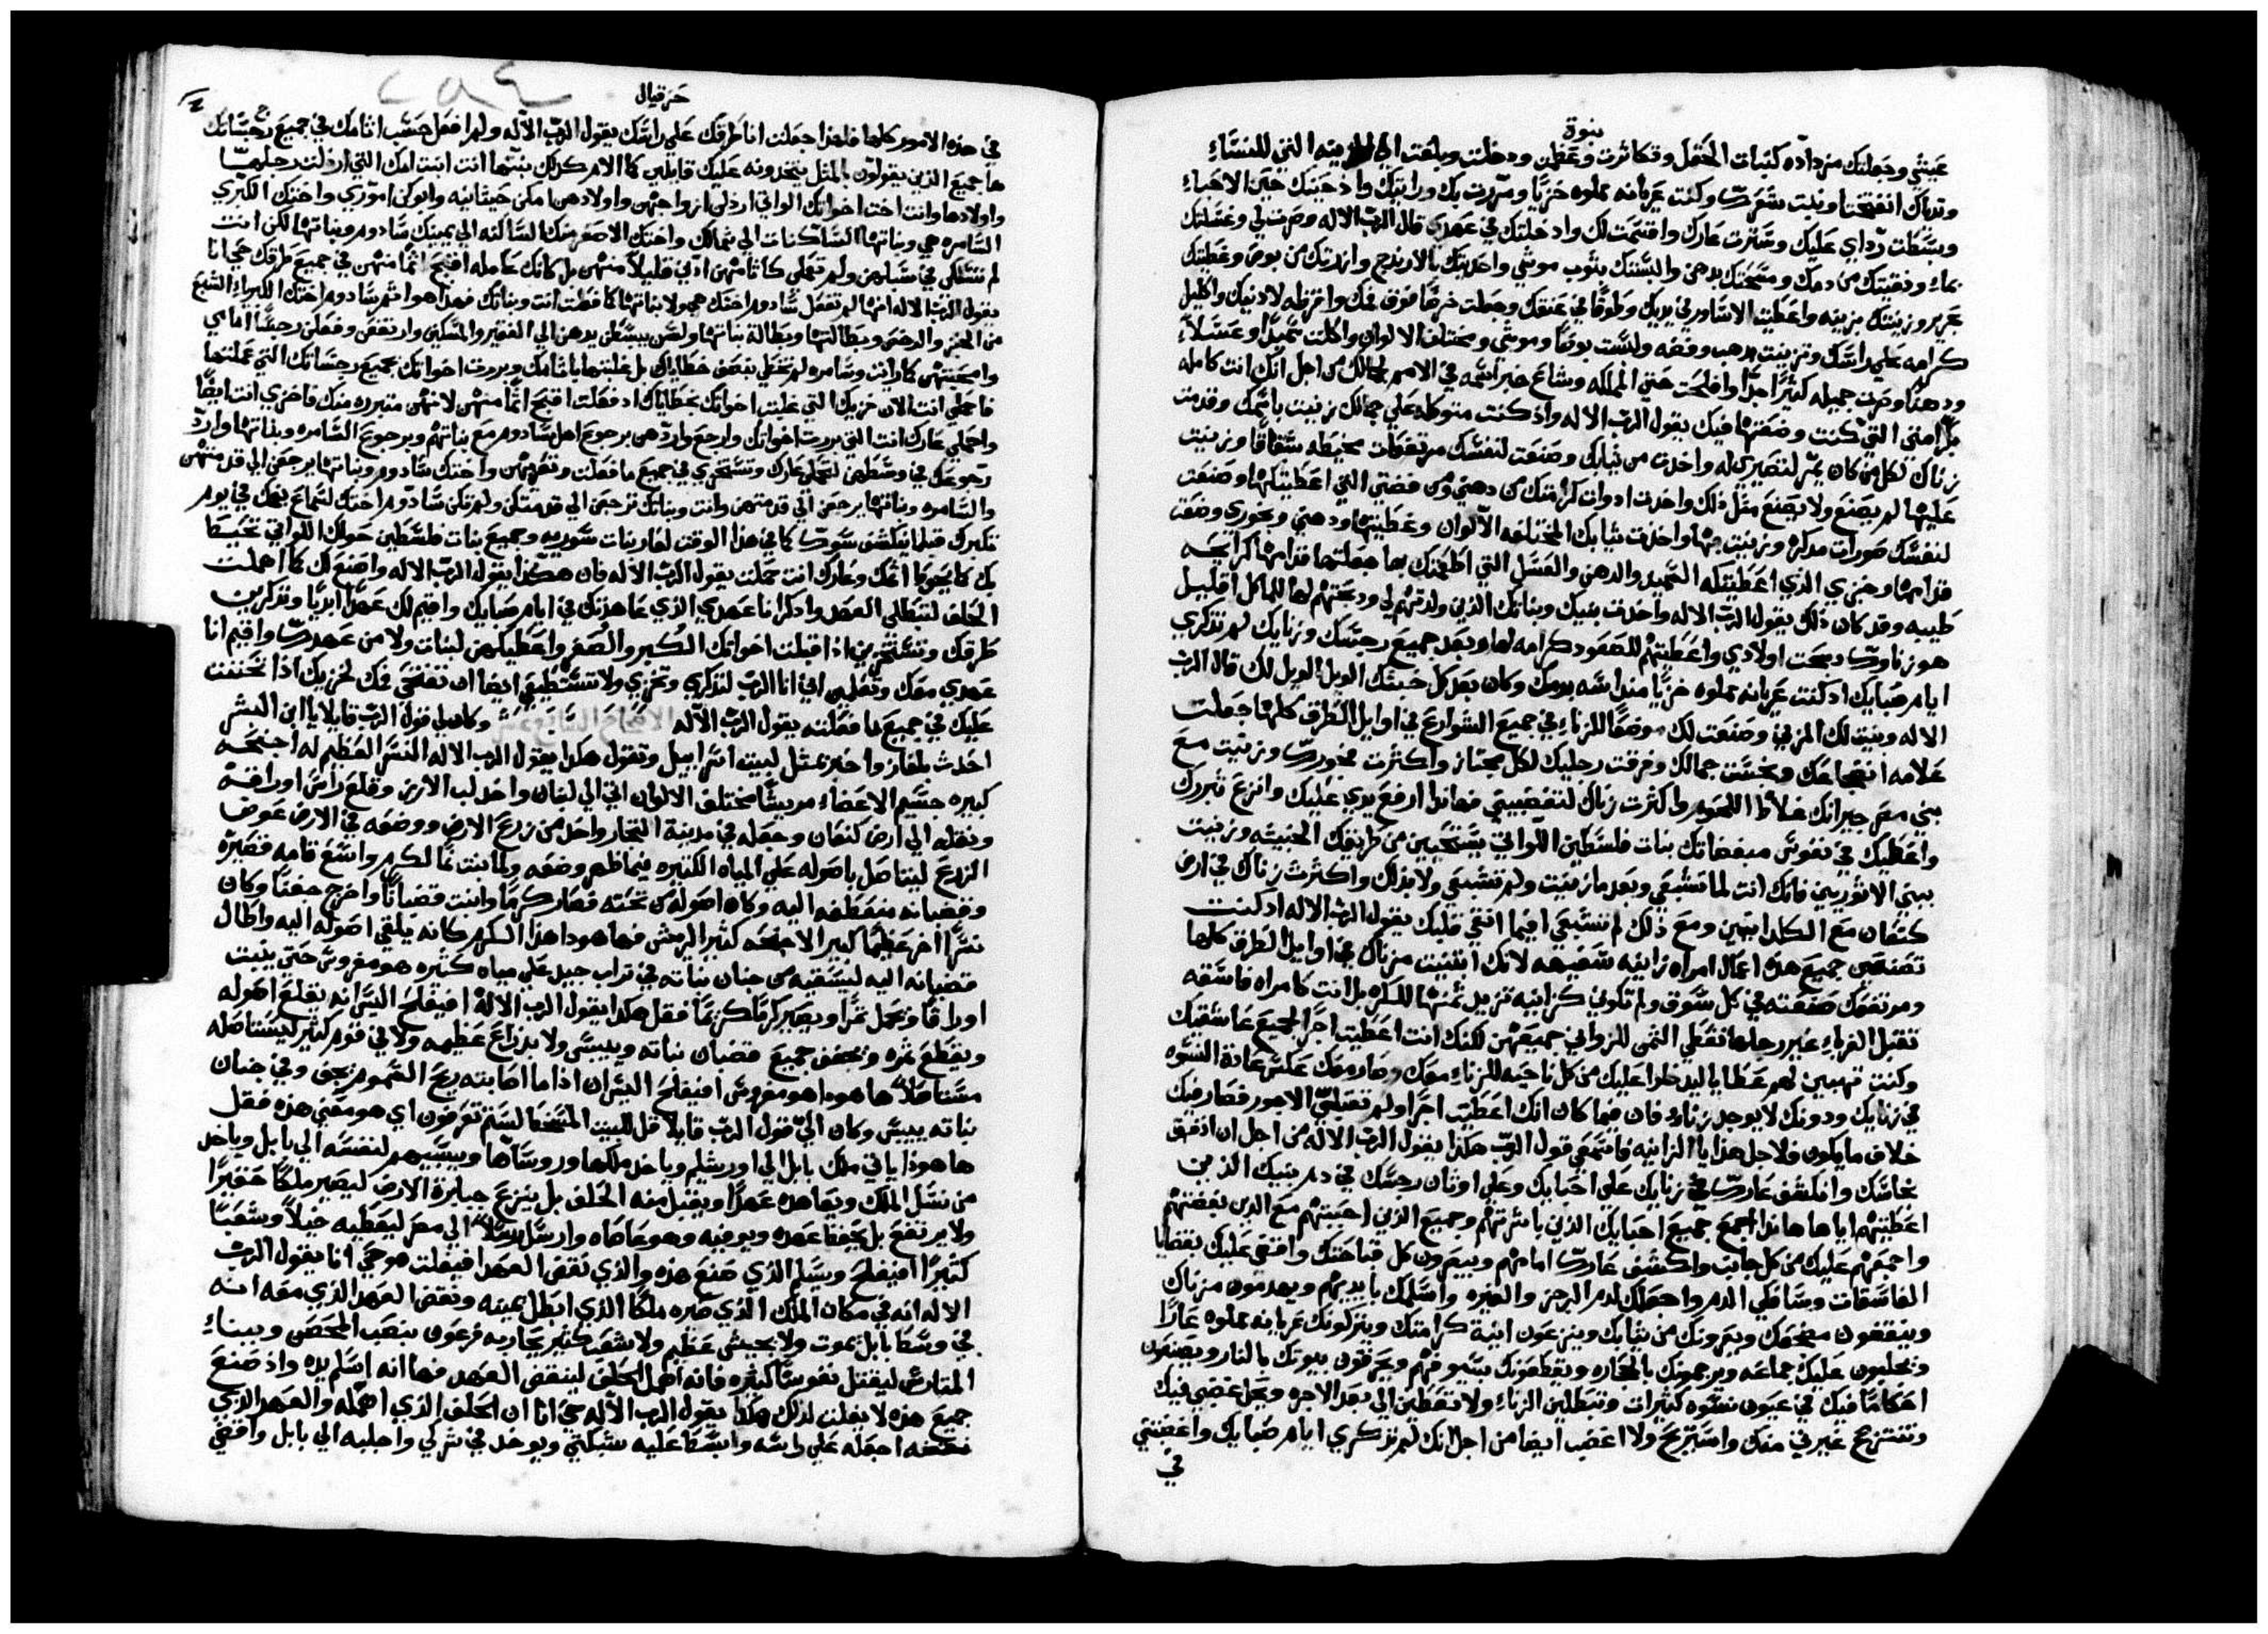 نبوة
عيشي وجعلتك مزداده كنبات الحقل وتكاثرت وعظمتي ودخلت وبلغت الي الزينه التي للنساءِ
وثدياك انتفختا ونبت شعرك وكنت عريانه مملوه خزيًا ومررت بك ورايتك واذ حينك حين الاحباءِ
وبسطت ردائي عليك وسترت عارك واقسمت لك وادخلتك في عهدي قال الرب الاله وصرت لي وغسلتك
بماءِ ونقيتك من دمك ومسحتك بدهن والبستك بثوب موشي واحذيتك بالارندج وازرتك من بوص وغطيتك
بحرير وزينتك بزينه واعطيت الاساور في يديك وطوقًا في عنقك وجعلت خرصًا فوق فمك واقرطه لاذنيك واكليل
كرامه علي راسك وتزينت بذهب وفضه ولبست بوصًا وموشي ومختلف الالوان واكلت سميدًا وعسلاً
ودهنًا وصرت جميله كثيرًا جدًا وافلحت حتي المملكه وشاع خبر اسمه في الامم لجمالك من اجل انك انت كامله
بكرامتي التي كنت وضعتها فيك يقول الرب الاله واذ كنت متوكله علي جمالك زنيت باسمك وقدمت
زناك لكل من كان يمر لتصيري له واخذت من ثيابك وصنعت لنفسك مرتفعات مخيطه شقاقًا وزنيت
عليها لم يصنع ولا يصنع مثل ذلك واخذت ادوات كرامتك من ذهبي ومن فضتي التي اعطيتكها وصنعت
لنفسك صورات مذكره وزنيت بها واخذت ثيابك المختلفه الالوان وغطيتها ودهني وبخوري وضعت
قدامها وخبزي الذي اعطيتكه السميد والدهن والعسل التي اطعمتك بها جعلتها قدامها كرايحه
طيبه وقد كان ذلك يقول الرب الاله واخذت بنيك وبناتك الذين ولدتهم لي وذبحتهم لها للماكل اقليل
هو زناوك ذبحت اولادي واعطيتهم للصعود كرامه لها وبعد جميع رجسك وزنايك لم تذكري
ايام صبايك اذ كنت عريانه مملوه خزيًا مندراسه بدمك وكان بعد كل خبثك الويل الويل لك قال الرب
الاله وبنيت لك المزني وصنعت لك موضعًا للزناءِ في جميع الشوارع في اوايل الطرق كلها جعلت
علامه انضجاعك ونجست جمالك وفرقت رجليك لكل مجتاز واكثرت فجورك وزنيت مع
بني مصر جيرانك غلاظ اللحوم واكثرت زناك لتغضبيني فهانذا ارفع يدي عليك وانزع تبررك
واعطيك في نفوس مبغضاتك بنات فلسطين اللواتي يستحيين من طريقك الخبيثه وزنيت
ببني الاثوريين فانك انت لما تشبعي وبعد ما زنيت ولم تشبعي ولا بذلك واكثرت زناك في ارض
كنعان مع الكلدانيين ومع ذلك لم تشبعي افيما انقي قلبك يقول الرب الاله اذ كنت
تصنعين جميع هذه اعمال امراه زانيه سفيهه لانك ابتنيت مزناك في اوايل الطرق كلها
ومرتفعك صنعته في كل سوق ولم تكوني كزانيه تزيد ثمنها للكره بل انت كامراه فاسقه
تقبل الغرباءِ غير رجلها تعطي الثمن للزواني جميعهن لكنك انت اعطيت اجرًا لجميع عاشقيك
وكنت تهيبين لهم عطايا ليدخلوا عليك من كل ناحيه للزناءِ معك وصار معك عكس عادة النسوه
في زنايك ودونك لا يوجد زناءِ فان فيما كان انك اعطيت اجرًا ولم تقبلي الاجور فصار فيك
خلاف ما يكون فلاجل هذا يا الزانيه فاسمعي قول الرب هكذا يقول الرب الاله من اجل ان اندفق
نحاسك وانكشف عارك في زنايك علي احبابك وعلي اوثان رجسك في دم بنيك الذين
اعطيتهم اياها هانذا اجمع جميع احبابك الذين باشرتهم وجميع الذين احببتهم مع الذين بغضتهم
واجمعهم عليك من كل جانب واكشف عارك امامهم ويبصرون كل قباحتك واقضي عليك بقضايا
الفاسقات وسافكي الدم واجعلك لدم الرجز والغيره واسلمك بايديهم ويهدمون مزناك
وينقضون مضجعك ويعرونك من ثيابك وينزعون انية كرامتك ويتركونك عريانه مملوه عارًا
ويجلبون عليك جماعه ويرجمونك بالحجاره ويقطعونك بسيوفهم ويحرقون بيوتك بالنار ويصنعون
احكامًا فيك في عيون نسوه كثيرات وتبطلين الزناءِ ولا تعطين الي بعد الاجره ويحل غضبي فيك
وتنتزح غيرتي منك واستريح ولا اغضب ايضا من اجل انك لم تذكري ايام صبايك واغضبتني
في
حزقيال
في هذه الامور كلها فلهذا جعلت انا طرقك علي راسك يقول الرب الاله ولم افعل حسب اثامك في جميع رجساتك
ها جميع الذين يقولون بالمثل يتخدونه عليك قايلين كما الام كذلك بنتها انت ابنت امك التي ارذلت رجلها
واولادها وانت اخت اخواتك اللواتي ارذلن ازواجهن واولادهن امكن حيثانيه وابوكن اموري واختك الكبري
السامره هي وبناتها الساكنات الي شمالك واختك الاصغر منك الساكنه الي يمينك سادوم وبناتها لكن انت
لم تسلكي في سبلهن ولم تعملي كاثامهن ادني قليلاً منهن بل كانك عامله اقبح اثمًا منهن في جميع طرقك حي انا
يقول الرب الاله انها لم تفعل سادوم اختك هي ولا بناتها كما فعلت انت وبناتك فهذا هو اثم سادوم اختك الكبرياءِ الشبع
من الخبز والرخص وبطالتها وبطالة بناتها ولسن يبسطن يدهن الي الفقير والمسكين وارتفعن وفعلن رجسًا امامي
وامحيتهن كما رايت وسامره لم تخطي نصف خطاياك بل غلبتها باثامك وبررت اخواتك بجميع رجساتك التي عملتها
فاحملي انت الان خزيك التي غلبت اخواتك بخطاياك اذ فعلت اقبح اثمًا منهن لانهن متبرره منك فاخزي انت ايضًا
واحملي عارك انت التي بررت اخواتك وارجع واردهن برجوع اهل سادوم مع بناتهم وبرجوع السامره وبناتها وارد
رجوعك في وسطهن لتحملي عارك وتستخزي في جميع ما فعلت وتعزيهن واختك سادوم وبناتها يرجعن الي قدمتهن
والسامره وبناتها يرجعن الي قدمتهن وانت وبناتك ترجعن الي قدمتكن ولم تكن سادوم اختك لتسماع بفمك في يوم
تكبرك قبلما ينكشف سوك كما في هذا الوقت لعار بنات سوريه وجميع بنات فلسطين حولك اللواتي تحيط
بك كما يحوط اثمك وعارك انت حملت يقول الرب الاله فان هكذا يقول الرب الاله واصنع لك كما اهملت
الحلف لتبطلي العهد واذكر انا عهدي الذي عاهدتك في ايام صبايك واقيم لك عهدًا ابديًا وتذكرين
طرقك وتستخزين اذا قبلت اخواتك الكبر والصغر واعطيكهن لبنات ولا من عهدك واقيم انا
عهدي معك وتعلمين اني انا الرب لتذكري وتخزي ولا تستطيعي ايضا ان تفتحي فمك لخزيك اذا تحننت
عليك في جميع ما فعلته يقول الرب الاله الاصحاح السابع عشر وكان لي قول الرب قايلا يا ابن البشر
احدث بلغاز واخبر بمثل لبيت اسراييل وتقول هكذا يقول الرب الاله النسر العظيم له اجنحه
كبيره جسيم الاعضاءِ مريشًا مختلف الالوان اتي الي لبنان واخذ لب الارز وقلع راس اوراقه
ونقله الي ارض كنعان وجعله في مدينة التجار واخذ من زرع الارض ووضعه في الارض عوض
الزرع ليتاصل باصوله علي المياه الكثيره فيما ظهر وضعه ولما نبت نما لكرم واسع قامه قصيره
وقضبانه منعطفه اليه وكان اصوله من تحته فصار كرمًا وانبت قضبانًا واخرج جفنًا وكان
نسرًا اخر عظيمًا كبير الاجنحه كثير الريش فها هوذا هذا الكرم كانه يلقي اصوله اليه واطال
قضبانه اليه ليسقيه من جنان نباته في تراب جيد علي مياه كثيره هو مغروس حتي ينبت
اوراقًا ويحمل ثمرًا ويصير كرمًا كريمًا فقل هكذا يقول الرب الاله افيفلح اليس انه يقلع اصوله
ويقطع ثمره ويجفف جميع قضبان نباته وييبس ولا بذراع عظيمه ولا في قوم كثير ليستاصله
مستاصلاً ها هوذا هو مغروس افيفلح اليس ان اذا ما اصابته ريح السموم يجف وفي جنان
نباته ييبس وكان الي قول الرب قايلا قل للبيت المسخط الستم تعرفون اي هو معني هذه فقل
ها هوذا ياتي ملك بابل الي اورشليم وياخذ ملكها وروساها ويسبيهم لنفسه الي بابل وياخذ
من نسل الملك ويعاهده عهدًا ويقبل منه الحلف بل ينزع جبابرة الارض ليصير ملكًا حقيرًا
ولا يرتفع بل يحفظ عهده ويوفيه وهو عاصاه وارسل رسلاً الي مصر ليعطيه خيلاً وشعبًا
كثيرًا افيفلح ويسلم الذي صنع هذه والذي نقض العهد افيفلت هو حي انا يقول الرب
الاله انه في مكان الملك الذي صيره ملكًا الذي ابطل يمينه ونقض العهد الذي معه انه
في وسط بابل يموت ولا بجيش عظيم ولا شعب كثير يحاربه فرعون بنصب المحصن وببناءِ
المتارس ليقتل نفوسًا كثيره فانه اهمل الحلف لينقض العهد فها انه اسلم يده واذ صنع
جميع هذه لا يفلت لذلك هكذا يقول الرب الاله حي انا ان الحلف الذي اهمله والعهد الذي
نقضه اجعله علي راسه وابسط عليه شبكتي ويوخذ في شركي واجلبه الي بابل واقضي